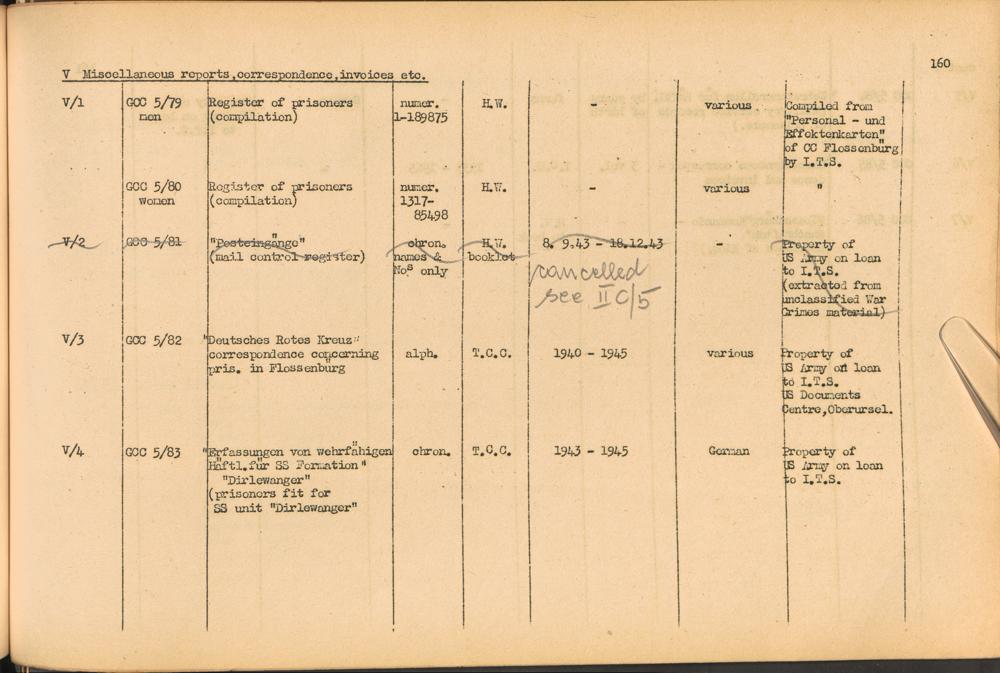 160
V Miscellaneous reports,correspondence,invoices etc.
V/1 GCC 5/79 Register of prisoners numer. H.W. - various Compiled from
men (compilation) 1-189875 "Personal - und
Effektenkarten"
of CC Flossenburg
by I.T.S.
GCC 5/80 Register of prisoners numer. H.W. - various "
women (compilation) 1317-
85498
V/2 GCC 5/81 "Posteingänge" chron. H.W. 8. 9.43 - 18.12.43 - Property of
(mail control register) names & booklet US Army on loan
Nos only to I.T.S.
cancelled (extracted from
see II C/5 unclassified War
Crimes material)
V/3 GCC 5/82 "Deutsches Rotes Kreuz"
correspondence concerning alph. T.C.C. 1940 - 1945 various Property of
pris. in Flossenbürg US Army on loan
to I.T.S.
US Documents
Centre,Oberursel.
V/4 GCC 5/83 "Erfassungen von wehrfähigen chron. T.C.C. 1943 - 1945 German Property of
Häftl.für SS Formation" US Army on loan
"Dirlewanger" to I.T.S.
(prisoners fit for
SS unit "Dirlewanger"